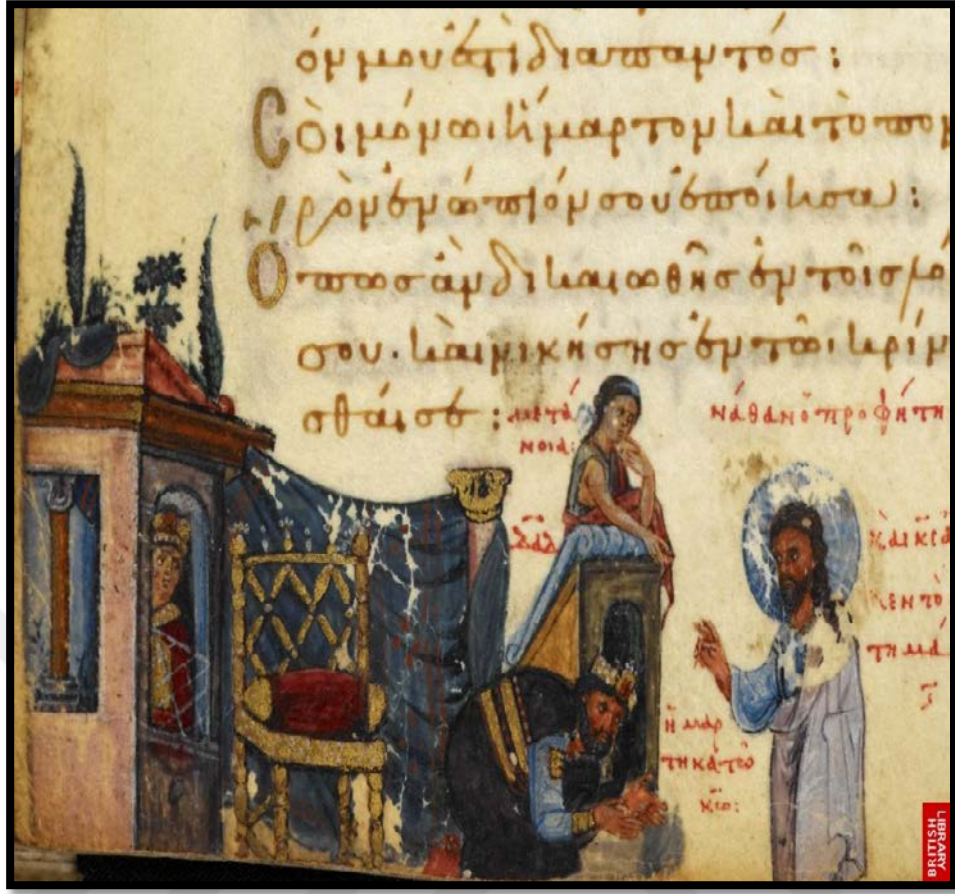 όν μου ἐστὶ διαπαντός:
Σοὶ μόνωι ἥμαρτον καὶ τὸ πον
ρὸν ἐνώπιόν σου ἐποίησα:
Ὅπως ἂν δικαιωθῆς ἐν τοῖς λό
σου· καὶ νικήσης ἐν τῶι κρίν
σθαί σε:
μετά
νοια:
νάθαν ὁ προφήτη
δαδ
καὶ κς ἀ
ἐν τὸ
τημά
ἡμάρ
τηκα τῶ
κω:
BRITISH
LIBRARY